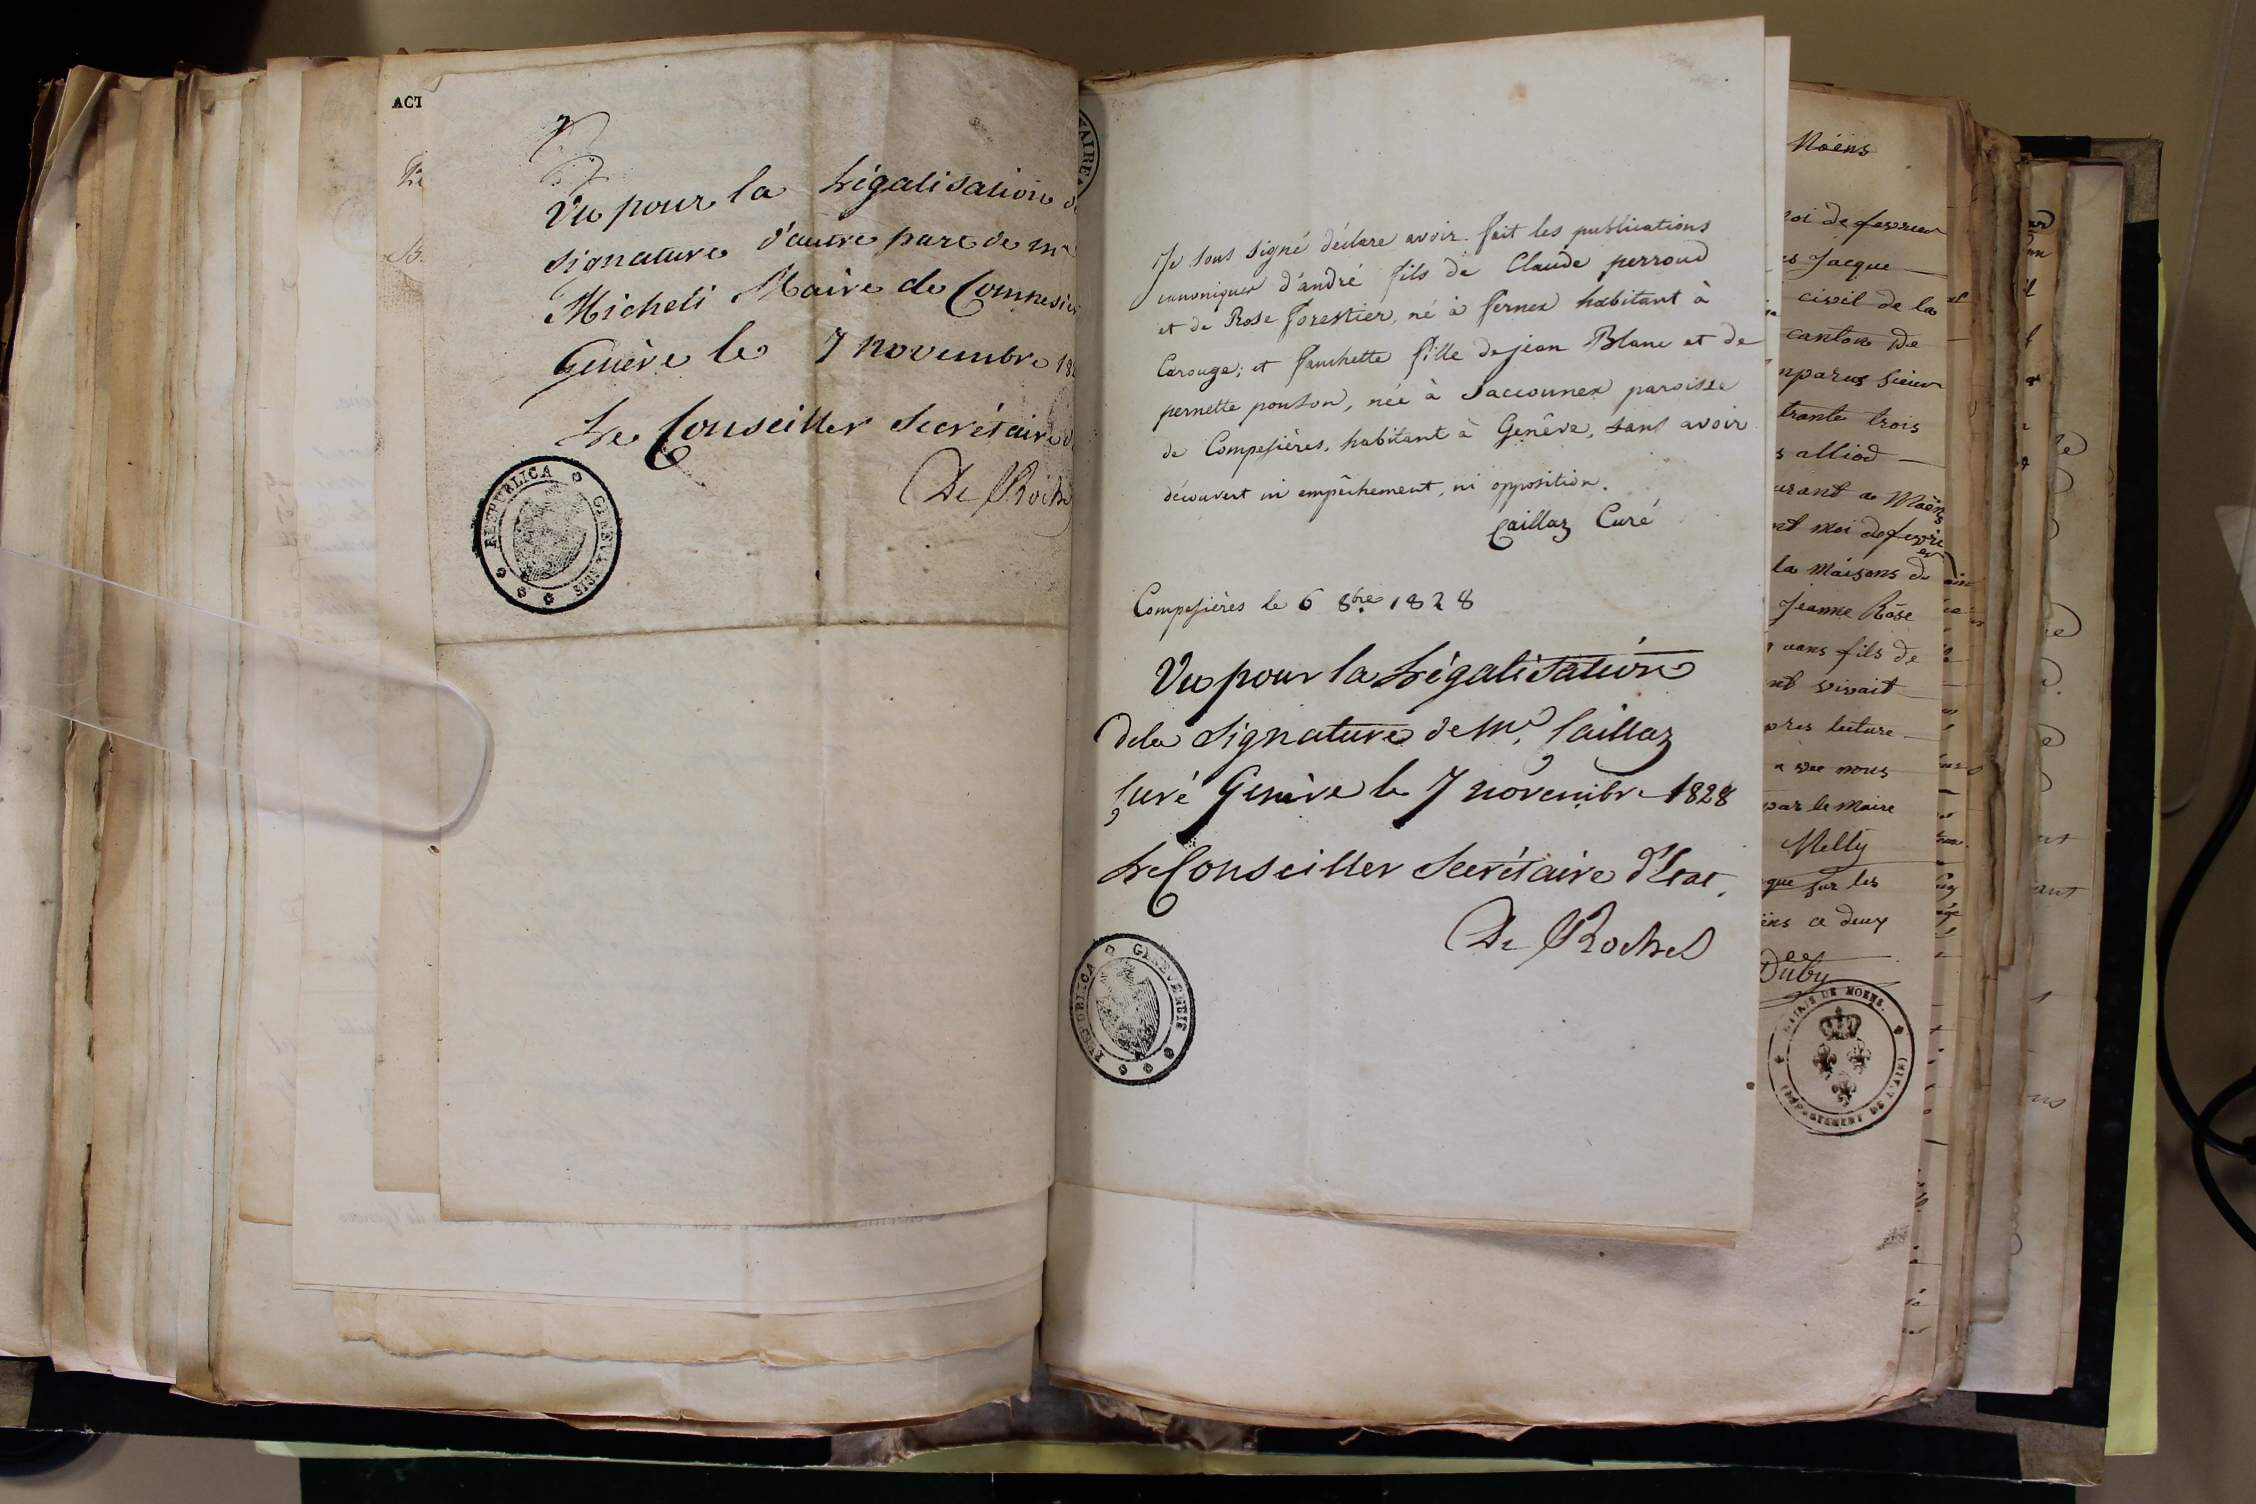 ACT
Vu pour la Légalisation de
signature d'autre part de mr
Micheli Maire de Compesiè
Genève le 7 novembre 182
Le Conseiller Secrétaire d
De Roche
RESPUBLICA GENEVENSIS
MAIRE
Je sous signé déclare avoir fait les publications
canoniques d'andré fils de Claude perroud
et de Rose forestier, né à fernex habitant à
Carouge; et fanchette fille de jean Blanc et de
pernette ponson, née à Saccounex paroisse
de Compesières, habitant à Genêve, sans avoir
découvert ni empêchement, ni opposition.
Caillaz Curé
Compesières le 6 8bre 1828
Vu pour la Légalisation
de la Signature de Mr. Caillaz
Curé Genève le 7 novembre 1828
Le Conseiller Secrétaire d'Etat,
De Roches
RESPUBLICA GENEVENSIS
Moëns
moi de fevrier
es Jacque
civil de la
canton de
mparus sieur
trante trois
s alliod
urant a Moëns
nt moi de fevri
er
la maisons de
Jeanne Rose
vans fils de
nt vivait
pres lecture
a vec nous
par le maire
Melly
que sur les
ins a deux
Duby
MAIRIE DE MOENS.
(DEPARTEMENT DE L'AIN)